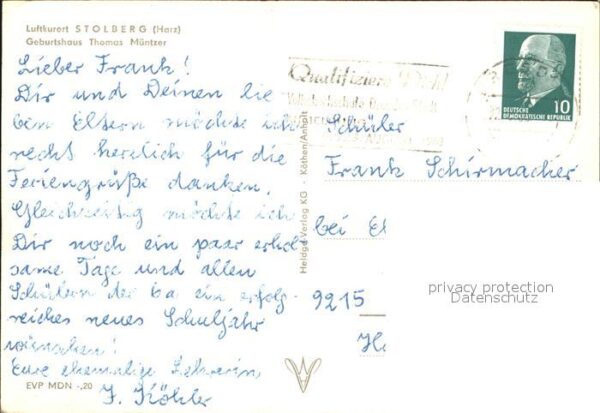 Luftkurort STOLBERG (Harz)
Geburtshaus Thomas Müntzer
Lieber Frank!
Dir und Deinen lie
ben Eltern möchte ich
recht herzlich für die
Feriengrüße danken.
Gleichzeitig möchte ich
Dir noch ein paar erhol
same Tage und allen
Schülern der 6a ein erfolg-
reiches neues Schuljahr
wünschen!
Eure ehemalige Lehrerin
J. Köhler
EVP MDN -,20
Heldge-Verlag KG - Köthen/Anhalt
Qualifiziere Dich!
Volkshochschule
10
DEUTSCHE
DEMOKRATISCHE REPUBLIK
Schüler
Frank Schirmacher
bei El
9215
privacy protection
Datenschutz